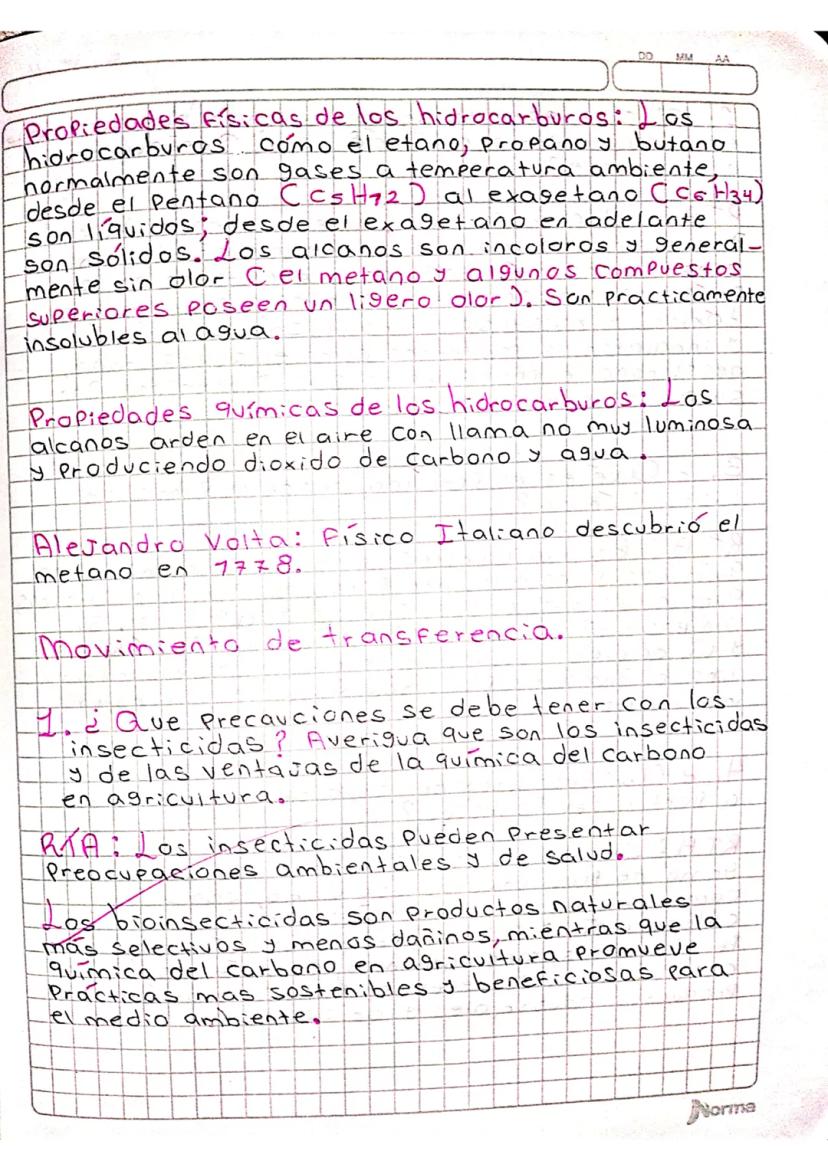 DD MM AA
Propiedades físicas de los hidrocarburos: Los
hidrocarburos cómo el etano, propano y butano
normalmente son gases a temperatura ambiente,
desde el pentano (C5H12) al exagetano (C6H34)
son líquidos; desde el exagetano en adelante
son sólidos. Los alcanos son incoloros y general-
mente sin olor (el metano y algunos compuestos
superiores poseen un ligero olor). Son practicamente
insolubles al agua.
Propiedades químicas de los hidrocarburos: Los
alcanos arden en el aire con llama no muy luminosa
y produciendo dioxido de carbono y agua.
Alejandro Volta: Físico Italiano descubrió el
metano en 1778.
Movimiento de transferencia.
1. ¿Que precauciones se debe tener con los
insecticidas? Averigua que son los insecticidas
y de las ventajas de la química del carbono
en agricultura.
RTA: Los insecticidas pueden presentar
preocupaciones ambientales y de salud.
Los bioinsecticidas son productos naturales
más selectivos y menos dañinos, mientras que la
química del carbono en agricultura promueve
prácticas mas sostenibles y beneficiosas para
el medio ambiente.
Norma